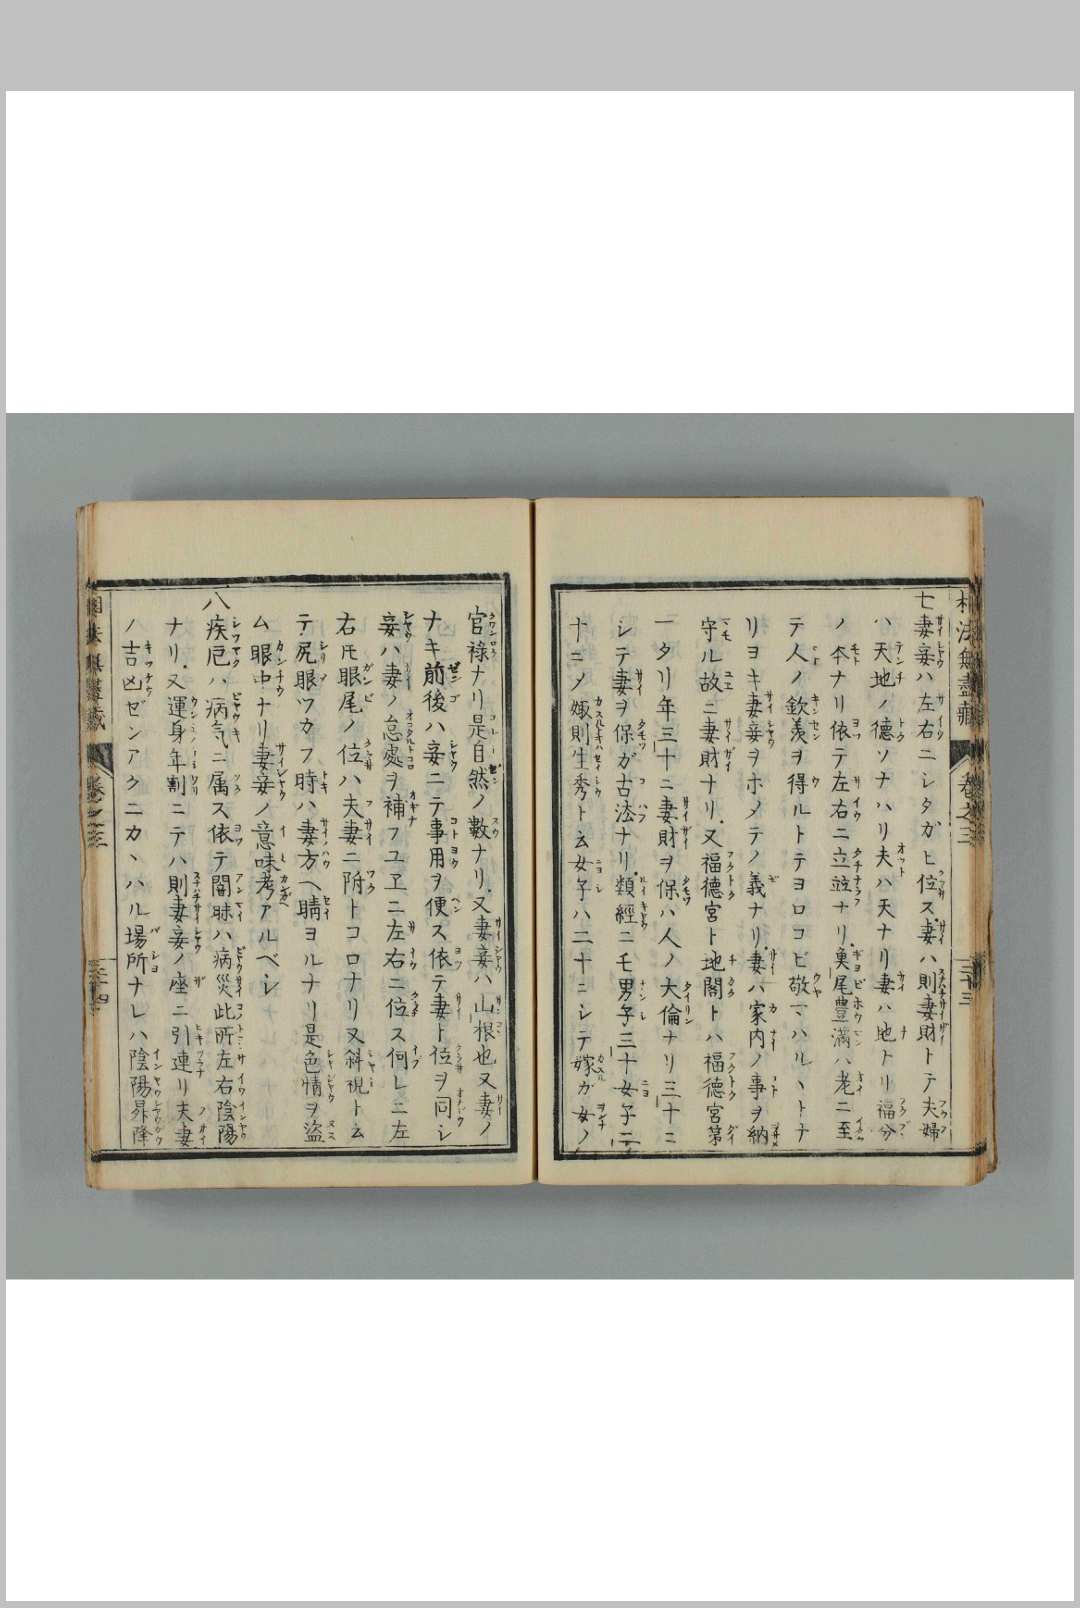 相法無盡藏　卷之三　三十三
七妻妾ハ左右ニシタガヒ位ス妻ハ則妻財トテ夫婦
ハ天地ノ德ソナハリ夫ハ天ナリ妻ハ地トリ福分
ノ本ナリ依テ左右ニ立竝ナリ魚尾豊滿ハ老ニ至
テ人ノ欽羨ヲ得ルトテヨロコビ敬マハルヽトナ
リヨキ妻妾ヲホメテノ義ナリ妻ハ家内ノ事ヲ納
守ル故ニ妻財ナリ又福德宮ト地閣トハ福德宮第
一タリ年三十ニ妻財ヲ保ハ人ノ大倫ナリ三十ニ
シテ妻ヲ保ガ古法ナリ類經ニモ男子三十女子二
十ニノ嫁則生秀ト云女子ハ二十ニシテ嫁ガ女ノ
官祿ナリ是自然ノ數ナリ又妻妾ハ山根也又妻ノ
ナキ前後ハ妾ニテ事用ヲ便ス依テ妻ト位ヲ同シ
妾ハ妻ノ怠處ヲ補フユヱニ左右ニ位ス何レニ左
右圧眼尾ノ位ハ夫妻ニ附トコロナリ又斜視ト云
テ尻眼ツカフ時ハ妻方ヘ睛ヨルナリ是色情ヲ盜
ム眼中ナリ妻妾ノ意味考アルベシ
八疾厄ハ病気ニ属ス依テ闇昧ハ病災此所左右陰陽
ナリ又運身年割ニテハ則妻妾ノ座ニ引連リ夫妻
ノ吉凶ゼンアクニカヽハル場所ナレハ陰陽昇降
相法無盡藏　卷之三　三十四